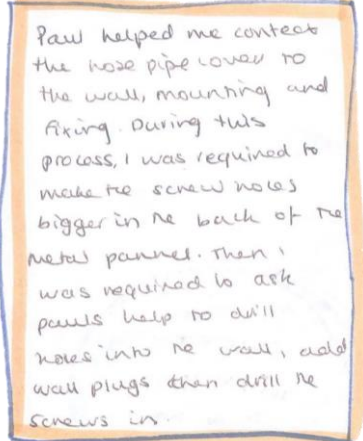 Paul helped me contect
the hose pipe cover to
the wall, mounting and
fixing. During this
process, I was required to
make the screw holes
bigger in the back of the
metal pannel. Then i
was required to ask
pauls help to drill
holes into the wall, add
wall plugs then drill the
screws in.